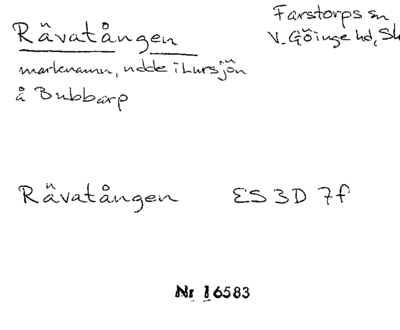 Rävatången
Farstorps sn
V. Göinge hd, Sk
marknamn, udde i Lursjön
å Bubbarp
Rävatången ES 3D 7f
Nr 16583